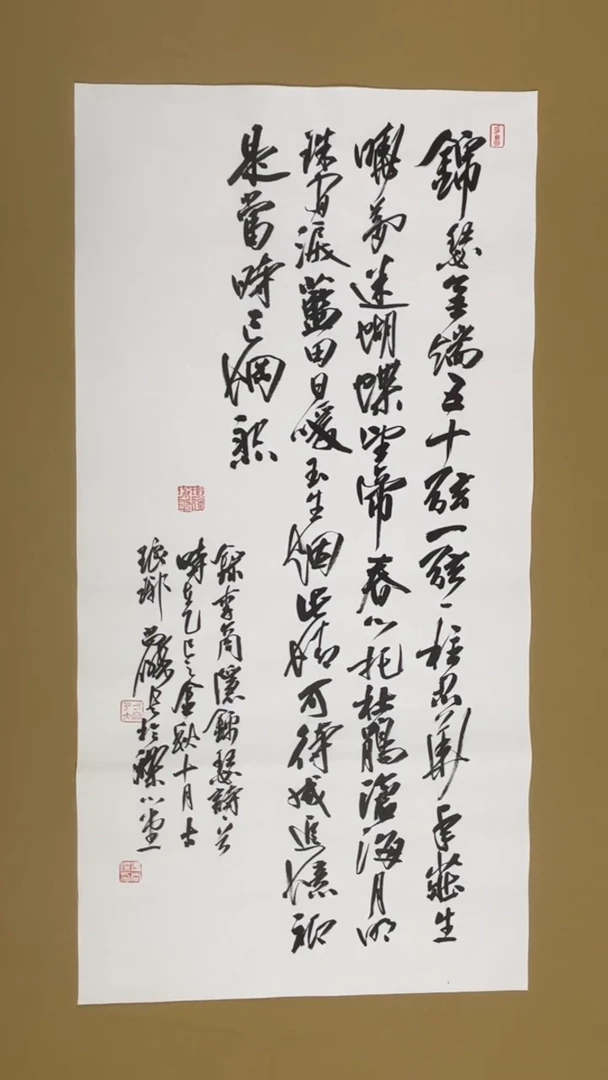 錦瑟無端五十弦一弦一柱思華年莊生
曉夢迷蝴蝶望帝春心托杜鵑滄海月明
珠有淚藍田日暖玉生烟此情可待成追憶祇
是當時已惘然
錄李商隱錦瑟詩
時在乙巳之金秋十月古
琅琊於心堂